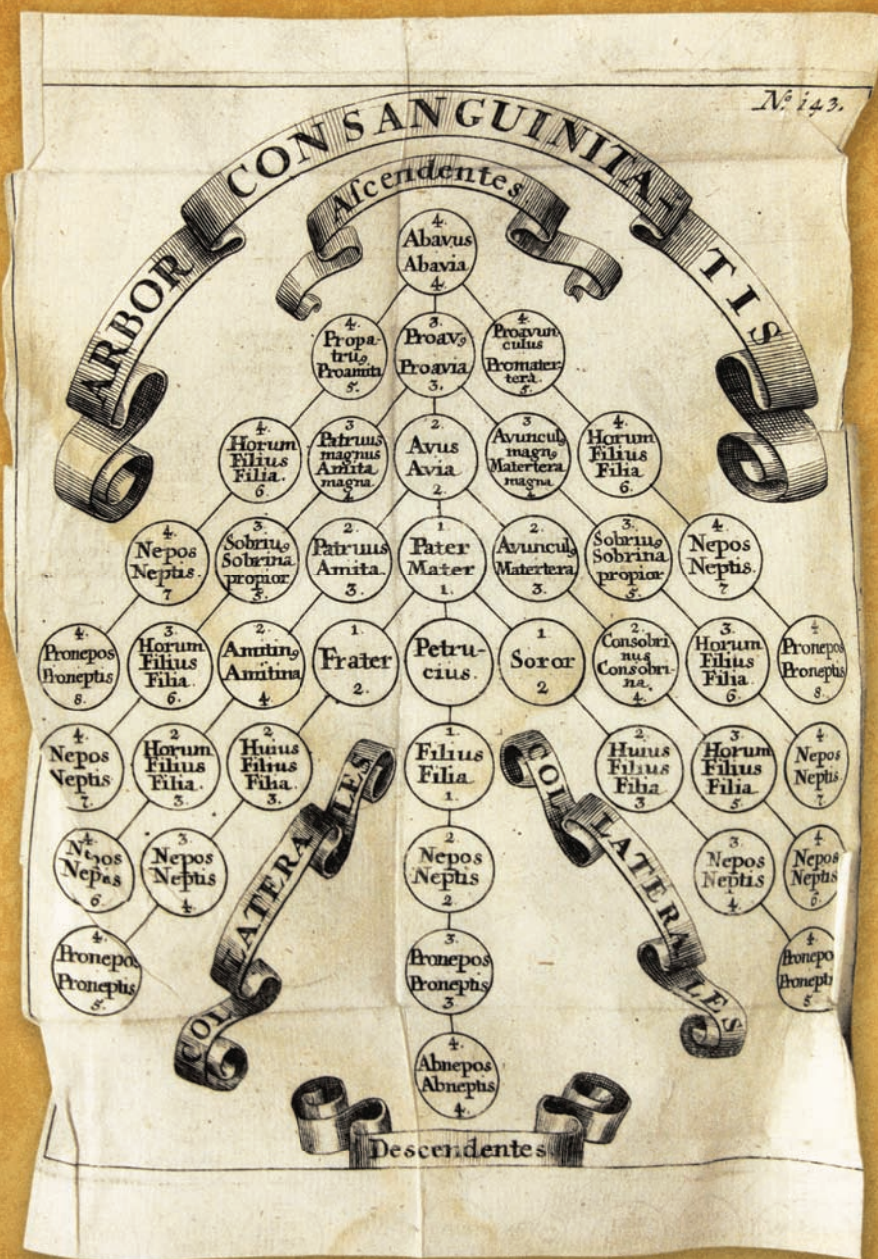 Nº. 143.
ARBOR CONSANGUINITA-TIS
Ascendentes
4.
Abavus
Abavia
4.
4.
Propa-
truꝰ
Proamita
5.
3.
Proavꝰ
Proavia
3.
4.
Proavun
culus
Promater-
tera.
5.
4.
Horum
Filius
Filia.
6.
3
Patruus
magnus
Amita
magna.
4
2
Avus
Avia
2.
3
Avunculꝰ
magnꝰ
Matertera
magna.
4
4.
Horum
Filius
Filia
6.
4.
Nepos
Neptis.
7
3.
Sobriuꝰ
Sobrina
propior.
5.
2.
Patruus
Amita.
3.
1.
Pater
Mater
1.
2.
Avunculꝰ
Matertera
3.
3.
Sobriuꝰ
Sobrina
propior
5.
4.
Nepos
Neptis.
7
4.
Pronepos
Proneptis
8.
3.
Horum
Filius
Filia.
6.
2.
Amitinꝰ
Amitina
4
1.
Frater
2.
Petru-
cius.
1
Soror
2
2.
Consobri
nus
Consobri-
na.
4.
3.
Horum
Filius
Filia.
6
4
Pronepos
Proneptis
8.
4.
Nepos
Neptis.
7.
2
Horum
Filius
Filia.
3.
2.
Huius
Filius
Filia.
3.
1.
Filius
Filia.
1.
2.
Huius
Filius
Filia
3
3
Horum
Filius
Filia.
5
4
Nepos
Neptis
7
COLLATERALES
COLLATERALES
4.
Nepos
Neptis
6
3.
Nepos
Neptis
4
2
Nepos
Neptis
2
3
Nepos
Neptis
4
4
Nepos
Neptis
6
4.
Pronepos
Proneptis
5.
3.
Pronepos
Proneptis
3
4
Pronepo
Pronepti
5
4.
Abnepos
Abneptis
4.
Descendentes